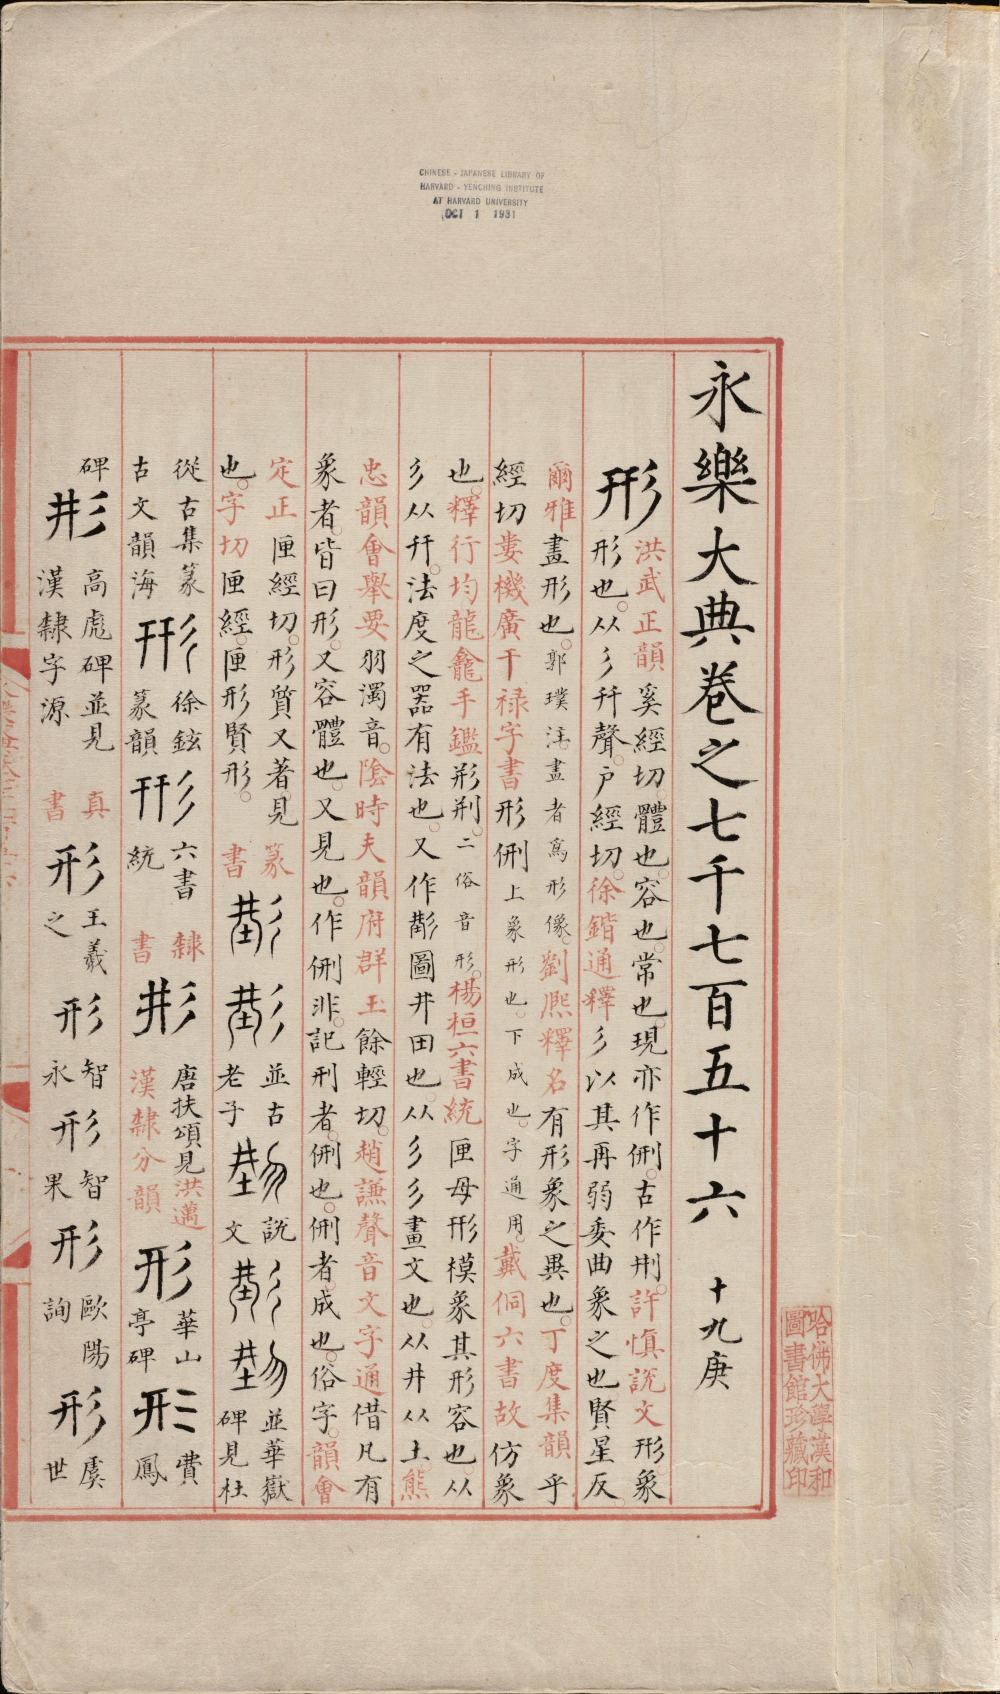 CHINESE - JAPANESE LIBRARY OF
HARVARD - YENCHING INSTITUTE
AT HARVARD UNIVERSITY
OCT 1 1931
永樂大典卷之七千七百五十六 十九庚
形
洪武正韻奚經切。體也。容也。常也。現亦作侀。古作𠛬。許慎說文形象
形也。从彡幵聲。戶經切。徐鍇通釋彡以其再弱委曲象之也賢星反
爾雅畫形也。郭璞注。畫者為形像。劉熈釋名有形象之異也。丁度集韻乎
經切婁機廣干祿字書形侀上象形也。下成也。字通用。戴侗六書故仿象
也。釋行均龍龕手鑑形𠛬。二俗音形。楊桓六書統匣母形模象其形容也。从
彡从幵。法度之器有法也。又作𢒈圖井田也。从彡彡畫文也。从井从土。熊
忠韻會舉要羽濁音。陰時夫韻府群玉餘輕切。趙謙聲音文字通借凡有
象者。皆曰形。又容體也。又見也。作侀非。記刑者。侀也。侀者。成也。俗字。韻會
定正匣經切。形質又著見
也。字切匣經。匣形賢形。
篆書
並古老子
說文
並華嶽碑見杜
從古集篆古文韻海
形
徐鉉篆韻
形
六書統
隸書
形
唐扶頌見洪邁漢隸分韻
形
華山亭碑
形
費鳳
碑
形
高彪碑並見漢隸字源
真書
形
王羲之
形
智永
形
智果
形
歐陽詢
形
虞世
哈佛大學漢和
圖書館珍藏印